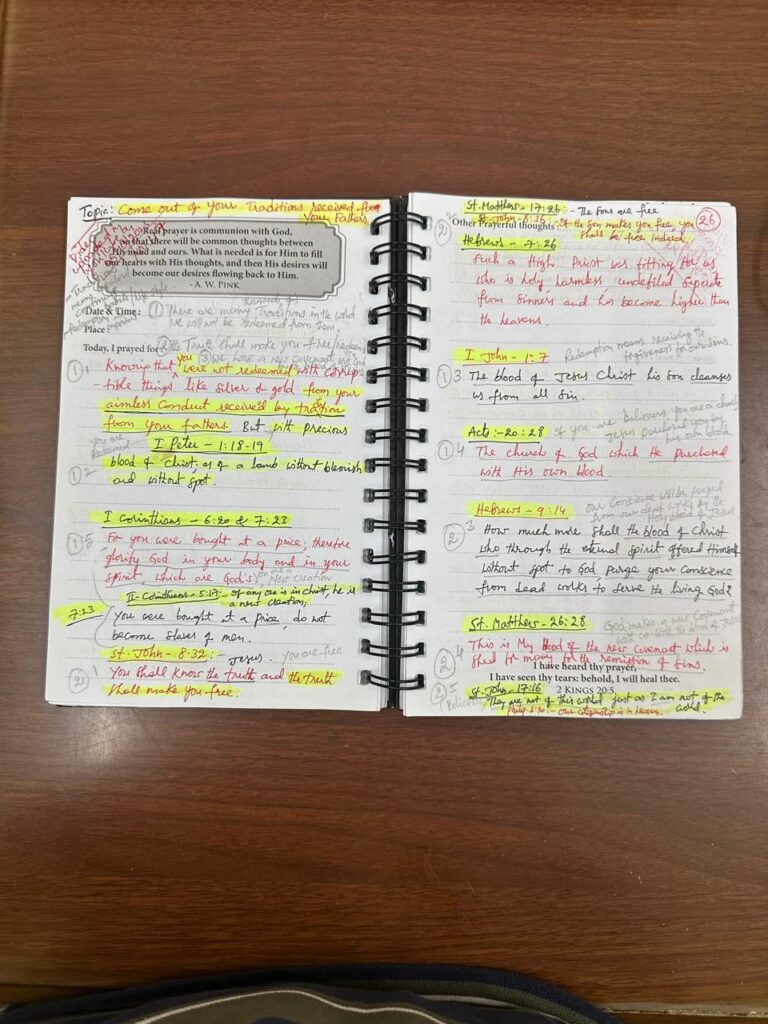 Topic: Come out of your Traditions received from
your Fathers
Real prayer is communion with God,
so that there will be common thoughts between
His mind and ours. What is needed is for Him to fill
our hearts with His thoughts, and then His desires will
become our desires flowing back to Him.
- A. W. PINK
Date & Time: ① There are many Traditions in the world
Place: we will not be redeemed from them.
Today, I prayed for ② the Truth shall make you free
③ We have a new covenant
① 1 Knowing that you were not redeemed with corrup-
tible things like silver & gold from your
aimless conduct received by tradition
from your fathers But with precious
you are redeemed
I Peter - 1:18-19
① 2 blood of Christ, as of a lamb without blemish
and without spot.
I Corinthians - 6:20 & 7:23
① 5 For you were bought at a price; therefore
glorify God in your body and in your
spirit, which are God's you are a New creation
II-Corinthians - 5:17:- If any one is in christ, he is
a new creation,
7:23 You were bought at a price, do not
become slaves of men.
St. John - 8:32:- Jesus. you are free
② 1 You shall know the truth and the truth
shall make you free.
St. Matthew - 17:26:- The sons are free
26
② 2 St. John - 8:36:- If the son makes you free, you
Other Prayerful thoughts: shall be free indeed.
Hebrews - 7:26
Such a High Priest was fitting for us
who is holy harmless undefiled seperate
from sinners and has become higher than
the heavens.
I John - 1:7 Redemption means receiving the
forgiveness for our sins.
① 3 The blood of Jesus Christ his son cleanses
us from all sin.
Acts:- 20:28 If you are believers you are a church
Jesus purchased you by
his own blood
① 4 The church of God which He purchased
with His own blood.
Hebrews - 9:14 our conscience will be purged
from our dead works by the
blood of Jesus
② 3 How much more shall the blood of Christ
who through the eternal spirit offered Himself
without spot to God purge your conscience
from dead works to serve the living God?
St. Matthew - 26:28 God makes a new covenant
with us by the blood of Jesus
② 4 This is My blood of the new covenant which is
shed for many for the remission of sins.
I have heard thy prayer,
I have seen thy tears: behold, I will heal thee.
2 KINGS 20:5
② 5 St. John - 17:16
They are not of this world just as I am not of the
world.
Philip. 3:20:- Our citizenship is in heaven.